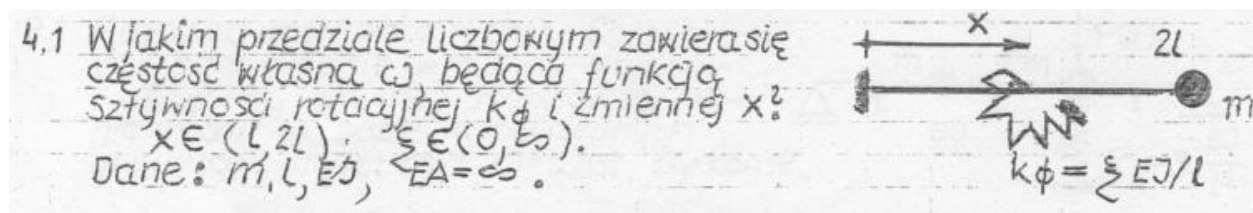 4.1 W jakim przedziale liczbowym zawiera się
częstość własna ω, będąca funkcją
sztywności rotacyjnej kϕ i zmiennej x?
x ∈ (l, 2l) . ξ ∈ (0, ∞).
Dane: m, l, EJ, EA = ∞ .
x
2l
m
kϕ = ξ EJ/l